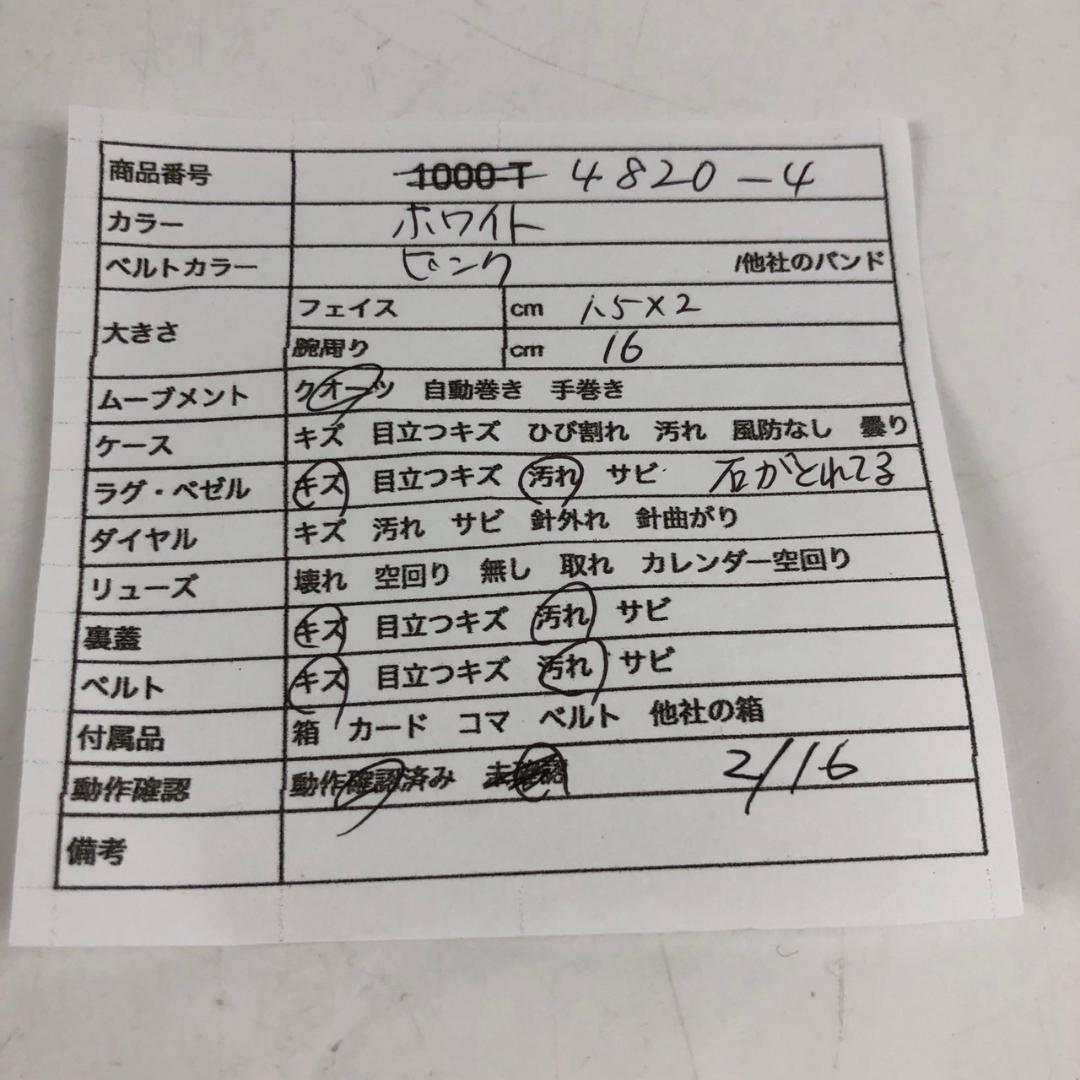 商品番号 1000-T 4820-4
カラー ホワイト
ベルトカラー ピンク /他社のバンド
大きさ フェイス cm 1.5×2
腕周り cm 16
ムーブメント クオーツ 自動巻き 手巻き
ケース キズ 目立つキズ ひび割れ 汚れ 風防なし 曇り
ラグ・ベゼル キズ 目立つキズ 汚れ サビ 石がとれてる
ダイヤル キズ 汚れ サビ 針外れ 針曲がり
リューズ 壊れ 空回り 無し 取れ カレンダー空回り
裏蓋 キズ 目立つキズ 汚れ サビ
ベルト キズ 目立つキズ 汚れ サビ
付属品 箱 カード コマ ベルト 他社の箱
動作確認 動作確認済み 未確認 2/16
備考